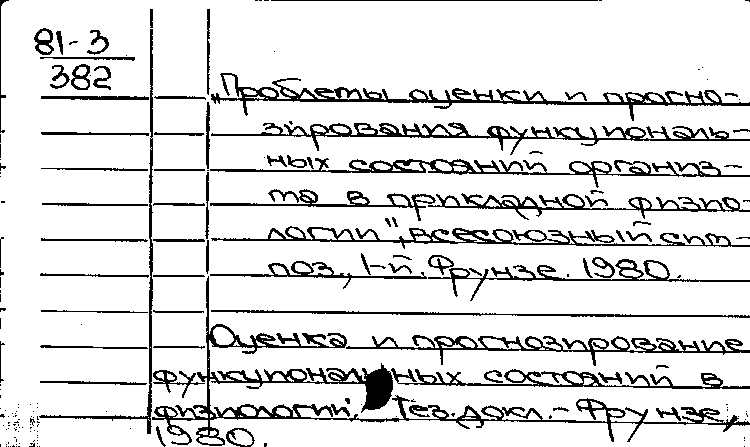 81-3
382
„Проблемы оценки и прогно-
зирования функциональ-
ных состояний организ-
ма в прикладной физио-
логии", всесоюзный сим-
поз., 1-й. Фрунзе. 1980.
Оценка и прогнозирование
функциональных состояний в
физиологии. Тез. докл. - Фрунзе,
1980.